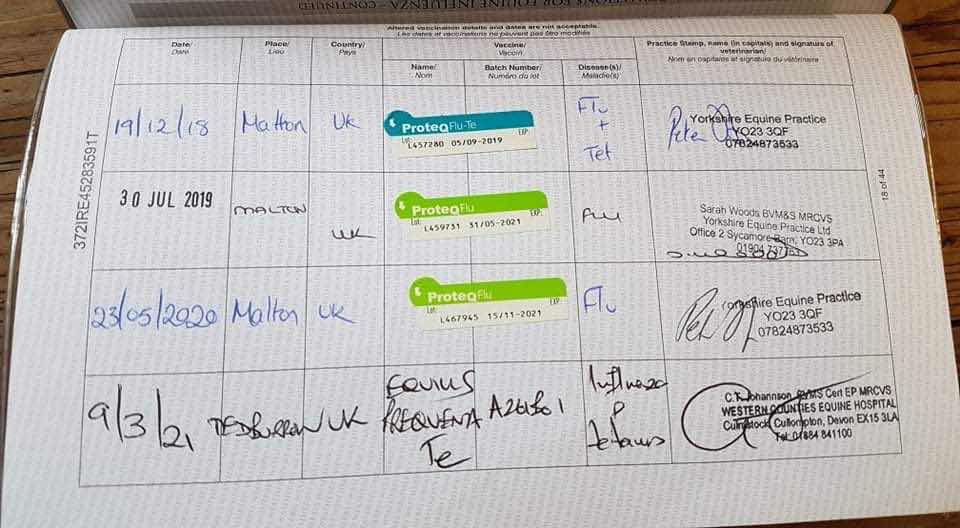 EQUINE INFLUENZA - CONTINUED
Altered vaccination details and dates are not acceptable.
Les dates et vaccinations ne peuvent pas être modifiés
Date/
Date
Place/
Lieu
Country/
Pays
Vaccine/
Vaccin
Practice Stamp, name (in capitals) and signature of
veterinarian/
Nom en capitales et signature du vétérinaire
Name/
Nom
Batch Number/
Numéro du lot
Disease(s)/
Maladie(s)
19/12/18
Malton
UK
ProteqFlu-Te
Lot: EXP:
L457280 05/09-2019
Flu
+
Tet
Peter
Yorkshire Equine Practice
YO23 3QF
07824873533
30 JUL 2019
MALTON
UK
ProteqFlu
Lot: EXP:
L459731 31/05-2021
Flu
Sarah Woods BVM&S MRCVS
Yorkshire Equine Practice Ltd
Office 2 Sycamore Barn, YO23 3PA
23/05/2020
Malton
UK
ProteqFlu
Lot: EXP:
L467945 15/11-2021
Flu
Yorkshire Equine Practice
YO23 3QF
07824873533
9/3/21
UK
EQUIUS
PREQUENZA
Te
Influenza
Tetanus
C.T. Johannson BVMS Cert EP MRCVS
WESTERN COUNTIES EQUINE HOSPITAL
Culmstock, Cullompton, Devon EX15 3LA
Tel: 01884 841100
372IRE45283591T
18 of 44